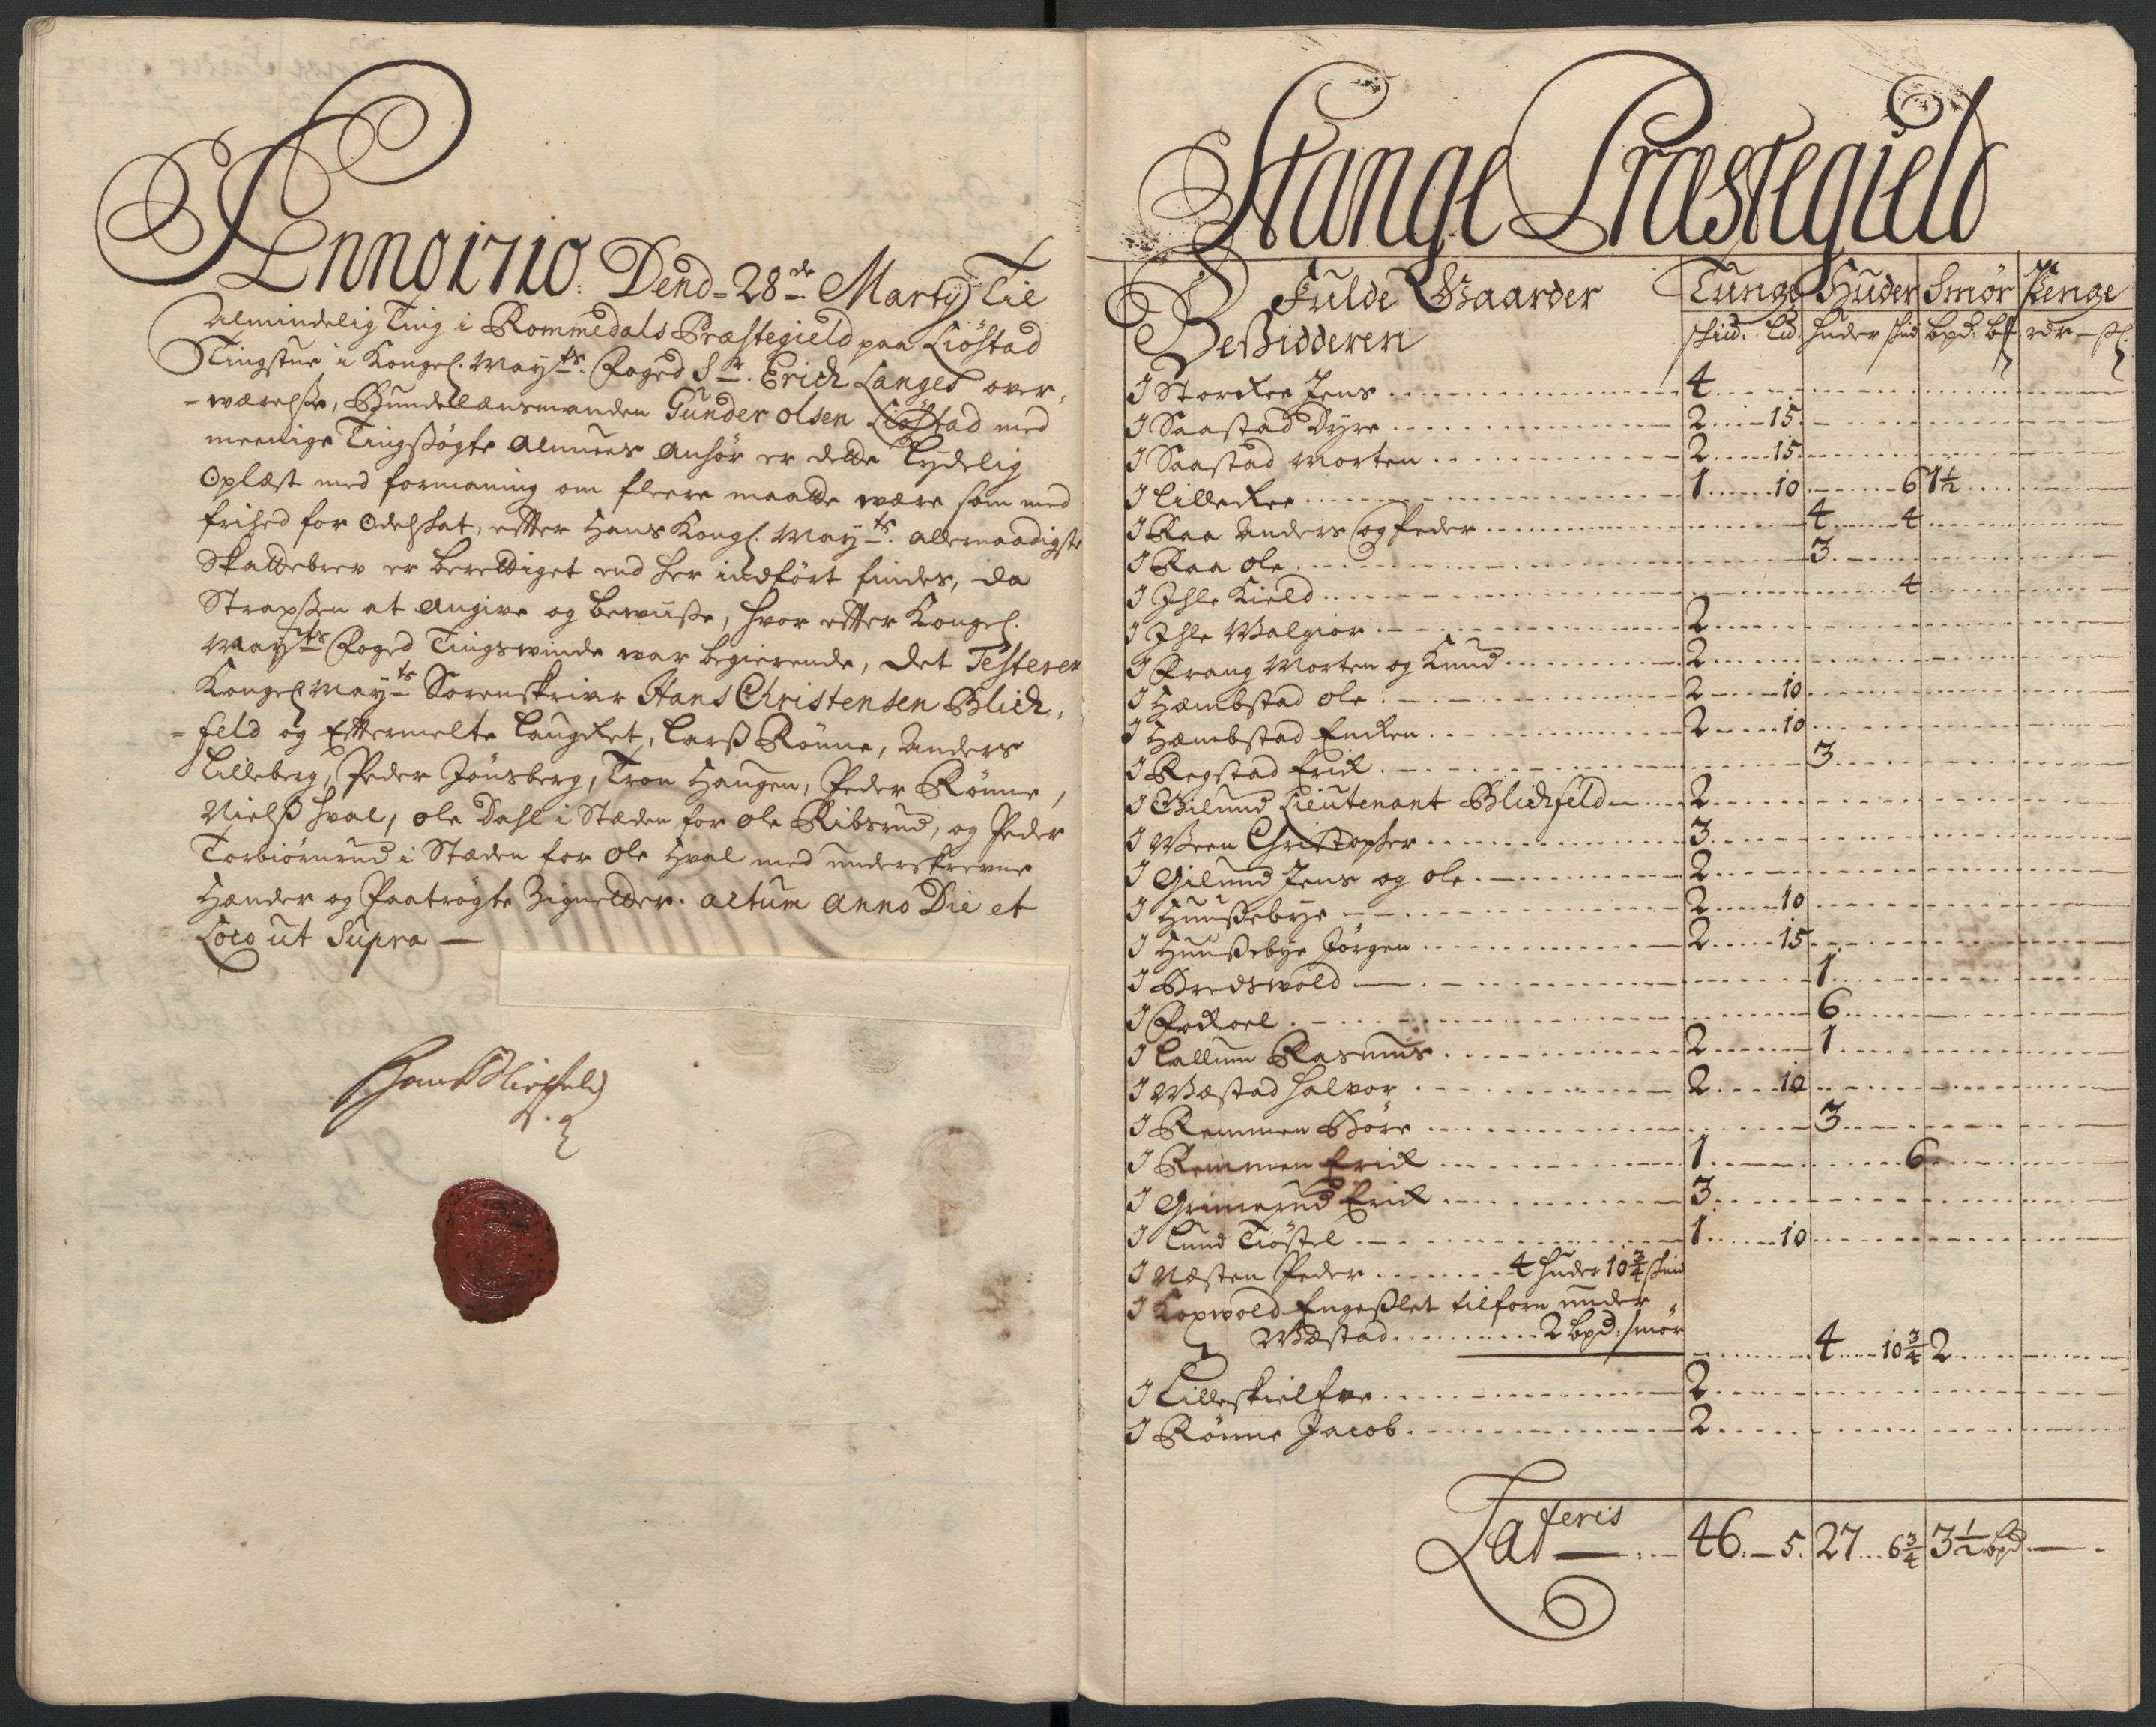 Anno 1710. Dend 28de Marty Til
Almindelig Ting i Rommedals Præstegield paa Liøstad
Tingstue i Kongel. Mayts. Foged Sr. Erich Langes over-
-værelsse, Bundelænsmanden Gunder olsen Liøstad med
meenige Tingsøgte Almues Anhør er dette Lydelig
Oplæst med formaning om fleere maatte være som med
frihed for Odelskat, efter Hans Kongl. Mayts. allernaadigste
Skattebrev er berettiget end her indført findes, da
Straxsen at Angive og beviisse, hvor efter Kongel.
Mayts Foged Tingsvinde var begierende, det Testerer
Kongel Mayts Sorenskriver Hans Christensen Blich-
-feld og Eftermelte Laugret, Larss Rönne, Anders
Lilleberg, Peder Jönsberg, Tron Haugen, Peder Rönne,
Nielss Hval, Ole Dahl i Stæden for Ole Ribsrud, og Peder
Torbiörnrud i Stæden for Ole Hval med underskrevne
Hænder og Paatrögte Zignetter. Actum Anno Die et
Loco ut Supra —
Hans Blichfeld
Stange Præstegield
Fulde Gaarder Tunge Huder Smør Penge
Besidderen skid. Ld. huder skid bpd. bß rdr ß
J Storkee Jens 4
J Saastad Dyre 2 15
J Saastad Morten 2 15
J Lilleckee 1 10 6 1½
J Raa Anders og Peder 4 4
J Raa Ole 3
J Ihle Kield 4
J Ihle Walgior 2
J Frang Morten og Knud 2
J Hæmbstad Ole 2 10
J Hæmbstad Encken 2 10
J Regstad Erick 3
J Gilund Lieutenant Blichfeld 2
J Ween Christopher 3
J Gilund Jens og Ole 2
J Huussebye 2 10
J Huussebye Jörgen 2 15
J Bredswold 1
J 6
J Lallum Rasmus 2 1
J Wæstad Halvor 2 10
J Remmen Börre 3
J Remmen Erick 1 6
J Grimerud Erick 3
J Lund Tiöstel 1 10
J Næsten Peder 4 huder 10¾ skind
J Kopwold Engesslet tilforn under
Wæstad 2 bpd. smør 4 10¾ 2
J Lilleskielfve 2
J Rönne Jacob 2
Lateris 46 5 27 6¾ 3½ bpd